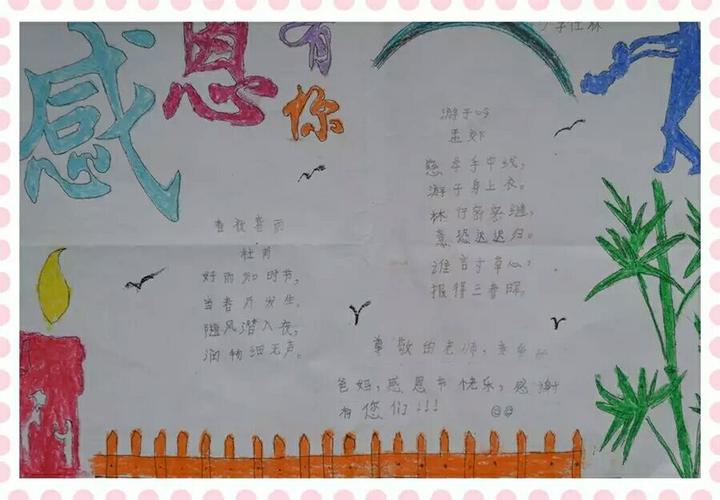 感恩有
你
春夜喜雨
杜甫
好雨知时节,
当春乃发生。
随风潜入夜,
润物细无声。
游子吟
孟郊
慈母手中线,
游子身上衣。
林行密密缝,
意恐迟迟归。
谁言寸草心,
报得三春晖。
尊敬的老师,亲爱的
爸妈,感恩节快乐,感谢
有您们!!!